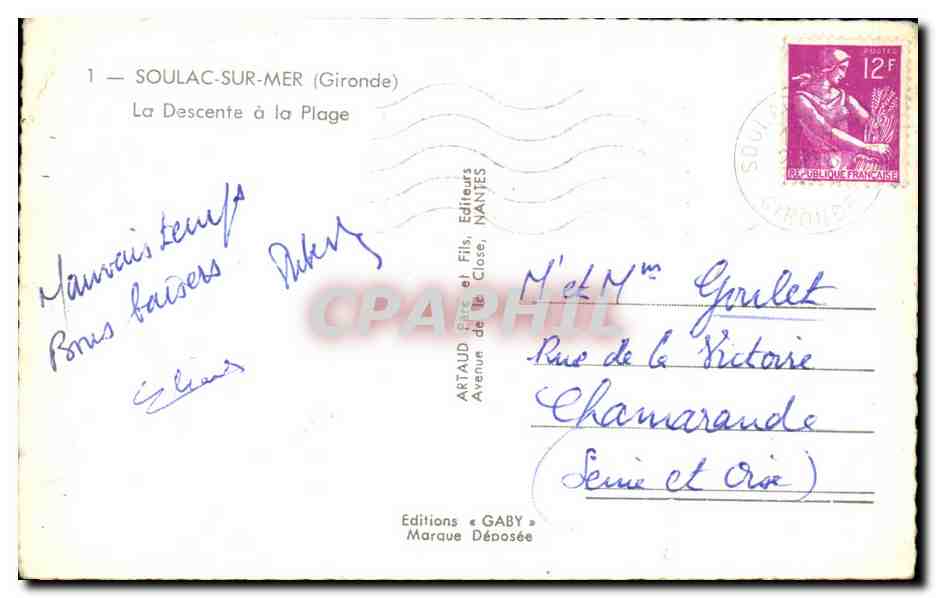 1 — SOULAC-SUR-MER (Gironde)
La Descente à la Plage
POSTES
12F
REPUBLIQUE FRANÇAISE
GIRONDE
Mauvais temps
Bons baisers
ARTAUD Père et Fils, Editeurs
Avenue de la Close, NANTES
CPAPHIL
Mr et Mme Goulet
Rue de la Victoire
Chamarande
(Seine et Oise)
Editions « GABY »
Marque Déposée